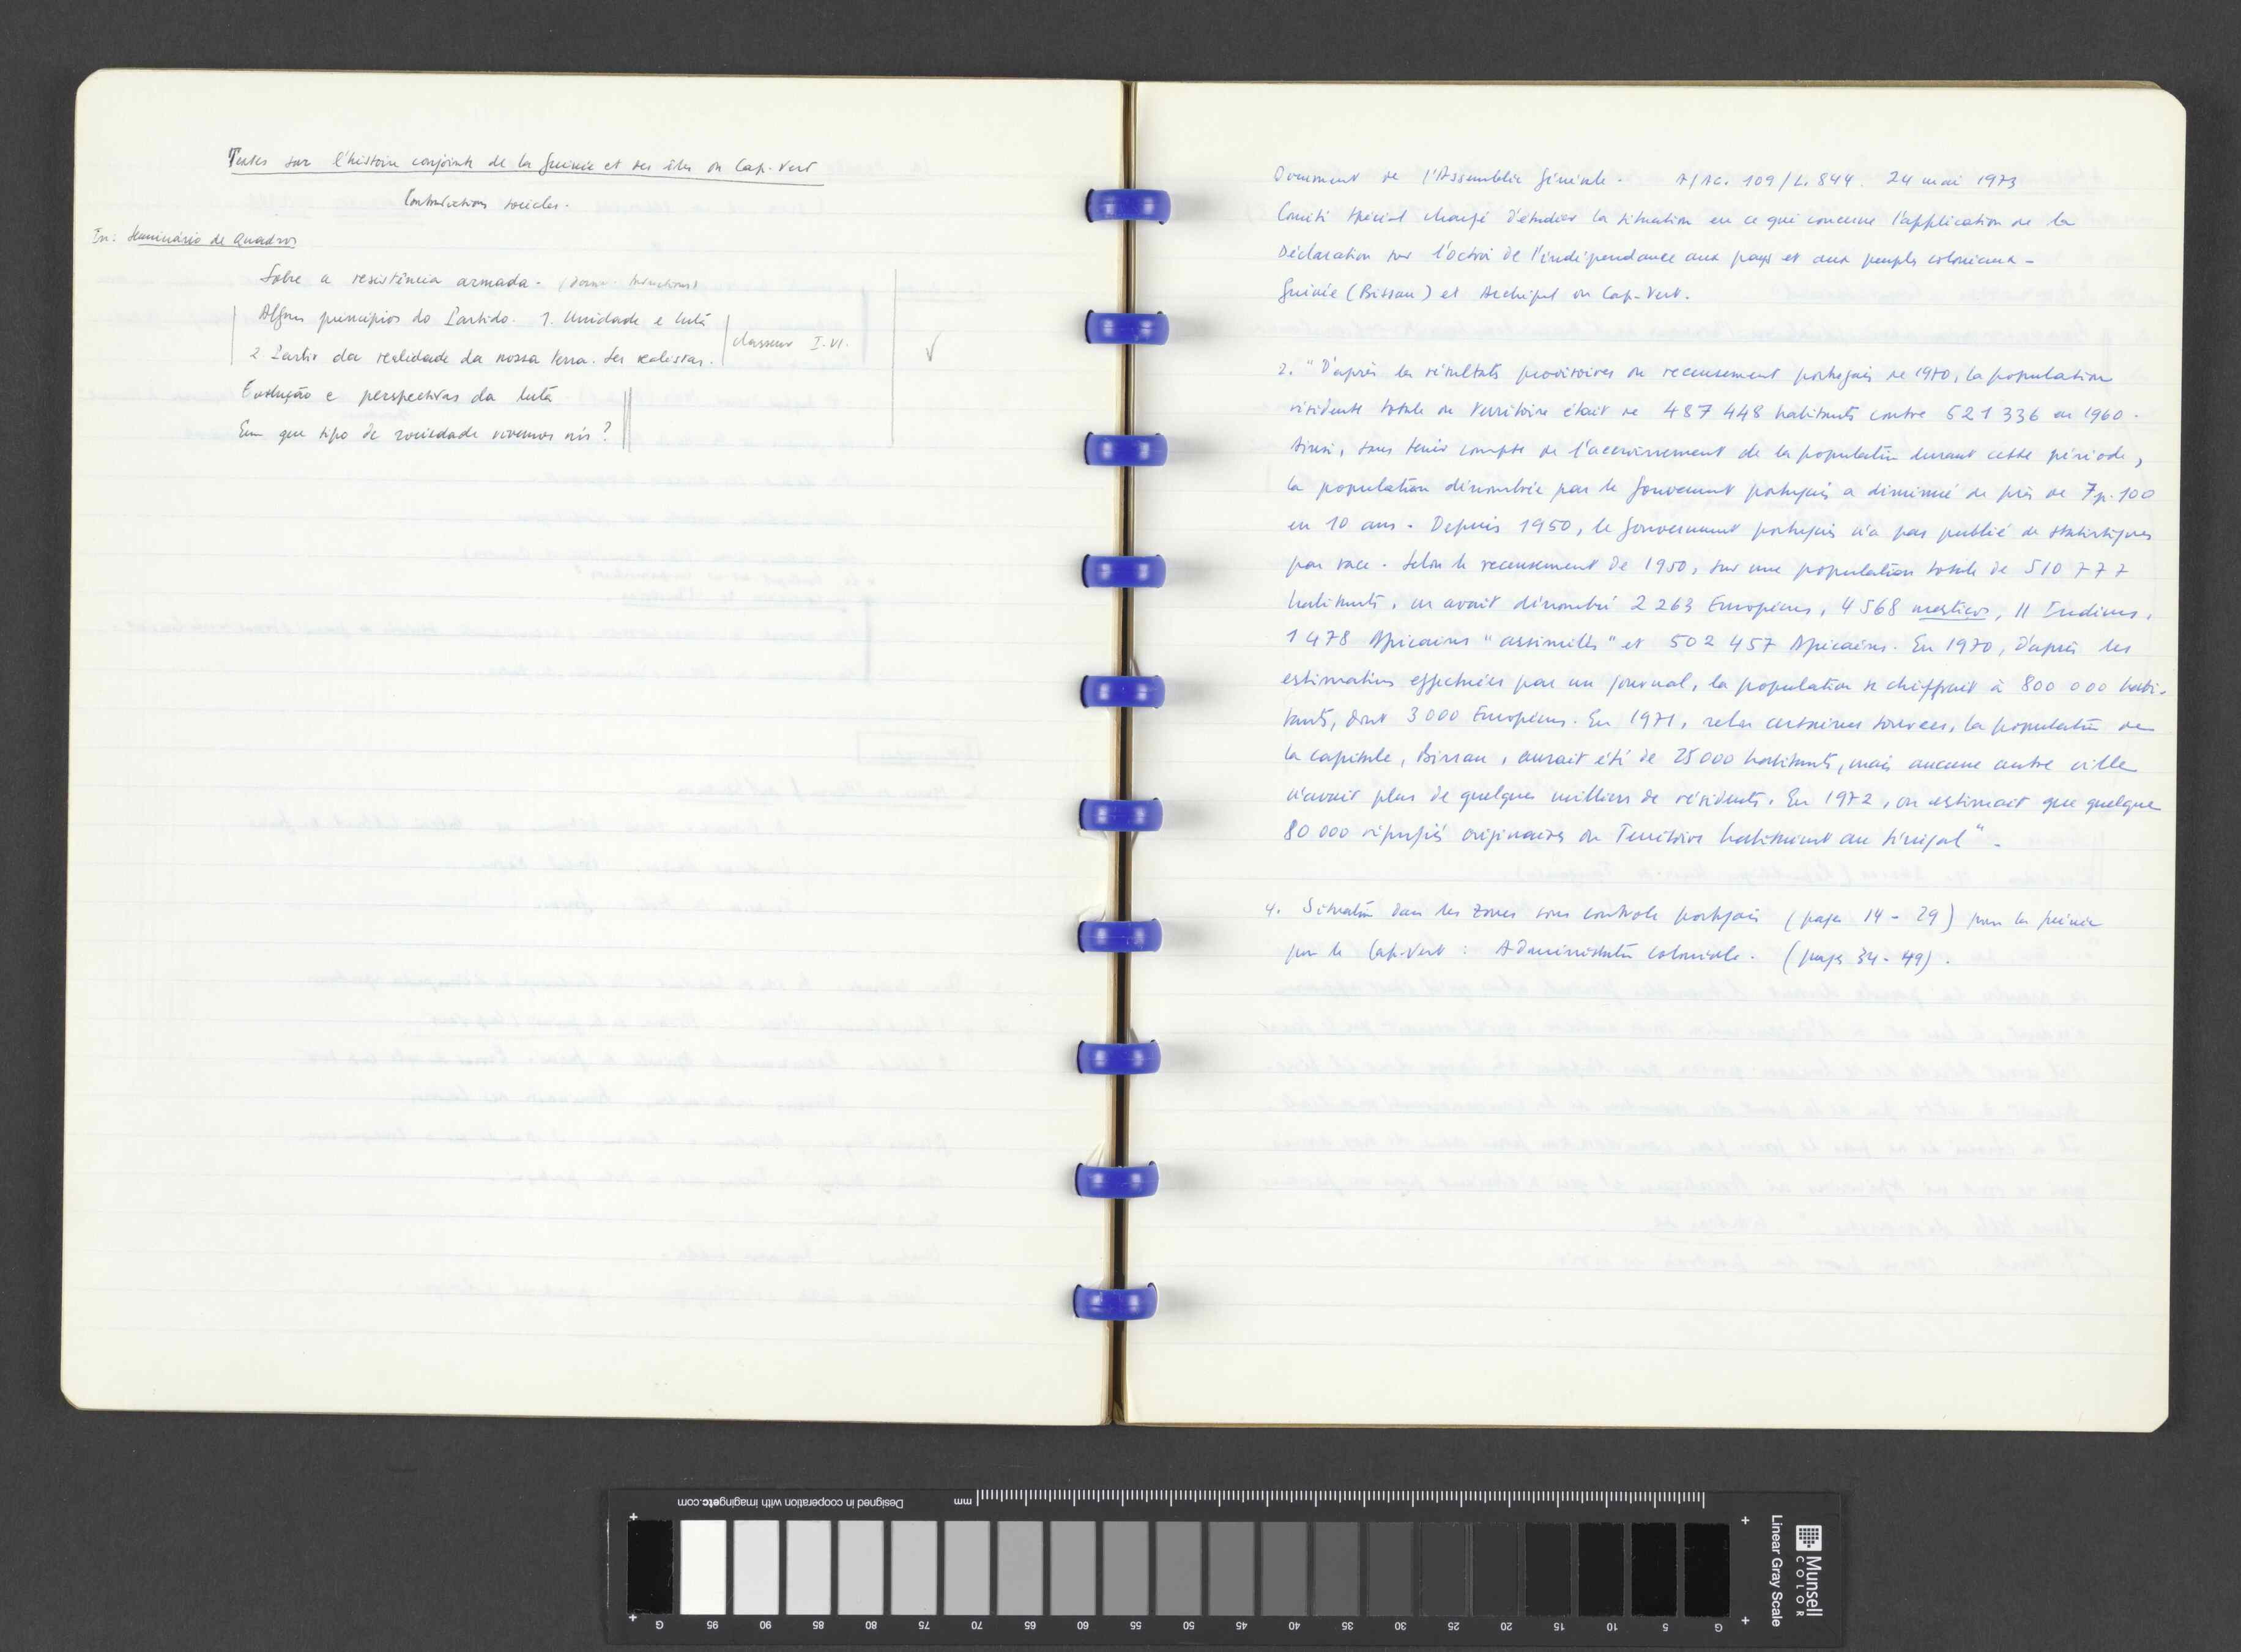 Textes sur l'histoire conjointe de la Guinée et des îles du Cap-Vert
Contradictions sociales.
In: Seminário de Quadros
Sobre a resistência armada.
Alguns princípios do Partido. 1. Unidade e luta
2 Partir da realidade da nossa terra. Ser realistas.
classeur I.VI.
Evolução e perspectivas da luta
Em que tipo de sociedade vivemos nós?
Document de l'Assemblée Générale. A/AC. 109/L. 844. 24 mai 1973
Comité spécial chargé d'étudier la situation en ce qui concerne l'application de la
Déclaration sur l'octroi de l'indépendance aux pays et aux peuples coloniaux -
Guinée (Bissau) et Archipel du Cap-Vert.
2. "D'après les résultats provisoires du recensement portugais de 1970, la population
résidente totale du Territoire était de 487 448 habitants contre 521 336 en 1960.
Ainsi, sans tenir compte de l'accroissement de la population durant cette période,
la population dénombrée par le Gouvernement portugais a diminué de près de 7 p. 100
en 10 ans. Depuis 1950, le Gouvernement portugais n'a pas publié de statistiques
par race. Selon le recensement de 1950, sur une population totale de 510 777
habitants, on avait dénombré 2 263 Européens, 4 568 mestiços, 11 Indiens,
1 478 Africains "assimilés" et 502 457 Africains. En 1970, d'après les
estimations effectuées par un journal, la population se chiffrait à 800 000 habi-
tants, dont 3 000 Européens. En 1971, selon certaines sources, la population de
la capitale, Bissau, aurait été de 25 000 habitants, mais aucune autre ville
n'avait plus de quelques milliers de résidents. En 1972, on estimait que quelque
80 000 réfugiés originaires du Territoire habitaient au Sénégal".
4. Situation dans les zones sous contrôle portugais (pages 14 - 29) pour la Guinée
pour le Cap-Vert : Administration coloniale. (pages 34 - 49).
Designed in cooperation with imagingetc.com
mm
Munsell
COLOR
Linear Gray Scale
G 95 90 85 80 75 70 65 60 55 50 45 40 35 30 25 20 15 10 5 G